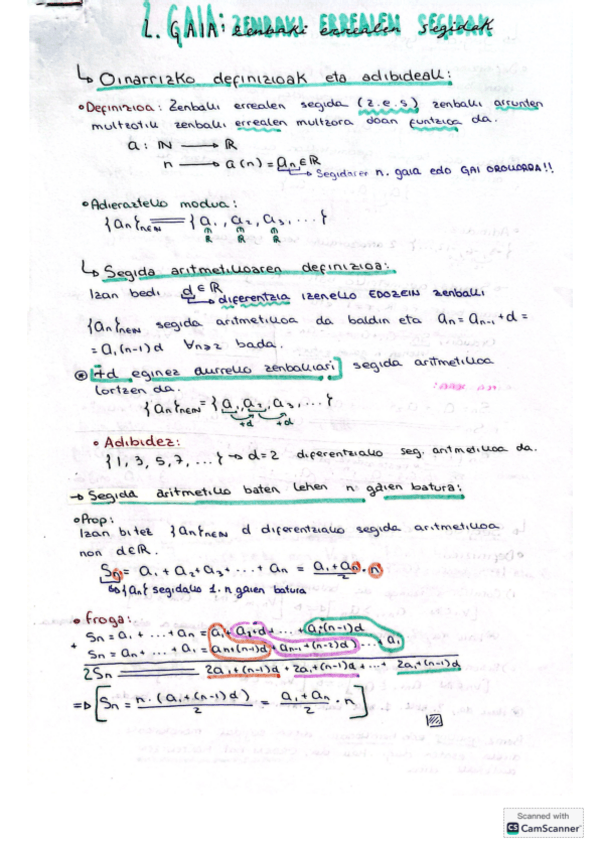 2. GAIA: ZENBAKI ERREALEN SEGIDAK
↳ Oinarrizko definizioak eta adibideak:
• Definizioa: Zenbaki errealen segida (z.e.s) zenbaki arrunten
multzotik zenbaki errealen multzora doan funtzioa da.
a: ℕ → ℝ
n → a(n) = an ∈ ℝ
↳ Segidaren n. gaia edo GAI OROKORRA!!
• Adierazteko modua:
{an}n∈ℕ = {a1, a2, a3, ...}
∈ ∈ ∈
ℝ ℝ ℝ
↳ Segida aritmetikoaren definizioa:
Izan bedi d ∈ ℝ
↳ diferentzia izeneko EDOZEIN zenbaki
{an}n∈ℕ segida aritmetikoa da baldin eta an = an-1 + d =
= a1(n-1)d ∀n≥2 bada.
+d eginez aurreko zenbakiari segida aritmetikoa
lortzen da.
{an}n∈ℕ = {a1, a2, a3, ...}
+d +d
• Adibidez:
{1, 3, 5, 7, ...} → d=2 diferentziako seg. aritmetikoa da.
→ Segida aritmetiko baten lehen n gaien batura:
• Prop:
Izan bitez {an}n∈ℕ d diferentziako segida aritmetikoa
non d∈ℝ.
Sn = a1 + a2 + a3 + ... + an = (a1 + an)/2 · n
↳ {an} segidako 1. n gaien batura
• Froga:
Sn = a1 + ... + an = a1 + a1+d + ... + a1(n-1)d
+ Sn = an + ... + a1 = a1+(n-1)d + a1+(n-2)d ... + a1
2Sn = 2a1+(n-1)d + 2a1+(n-1)d + ... + 2a1+(n-1)d
⇒ [Sn = n·(a1+(n-1)d)/2 = (a1 + an)/2 · n]
Scanned with
CS CamScanner